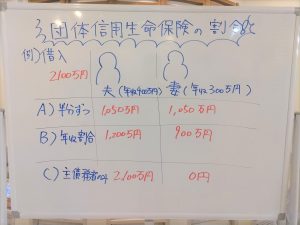 団体信用生命保険の割合
例)借入
2100万円
夫(年収400万円) 妻(年収300万円)
A) 半分ずつ 1,050万円 1,050万円
B) 年収割合 1,200万円 900万円
C) 主債務者のみ 2,100万円 0円